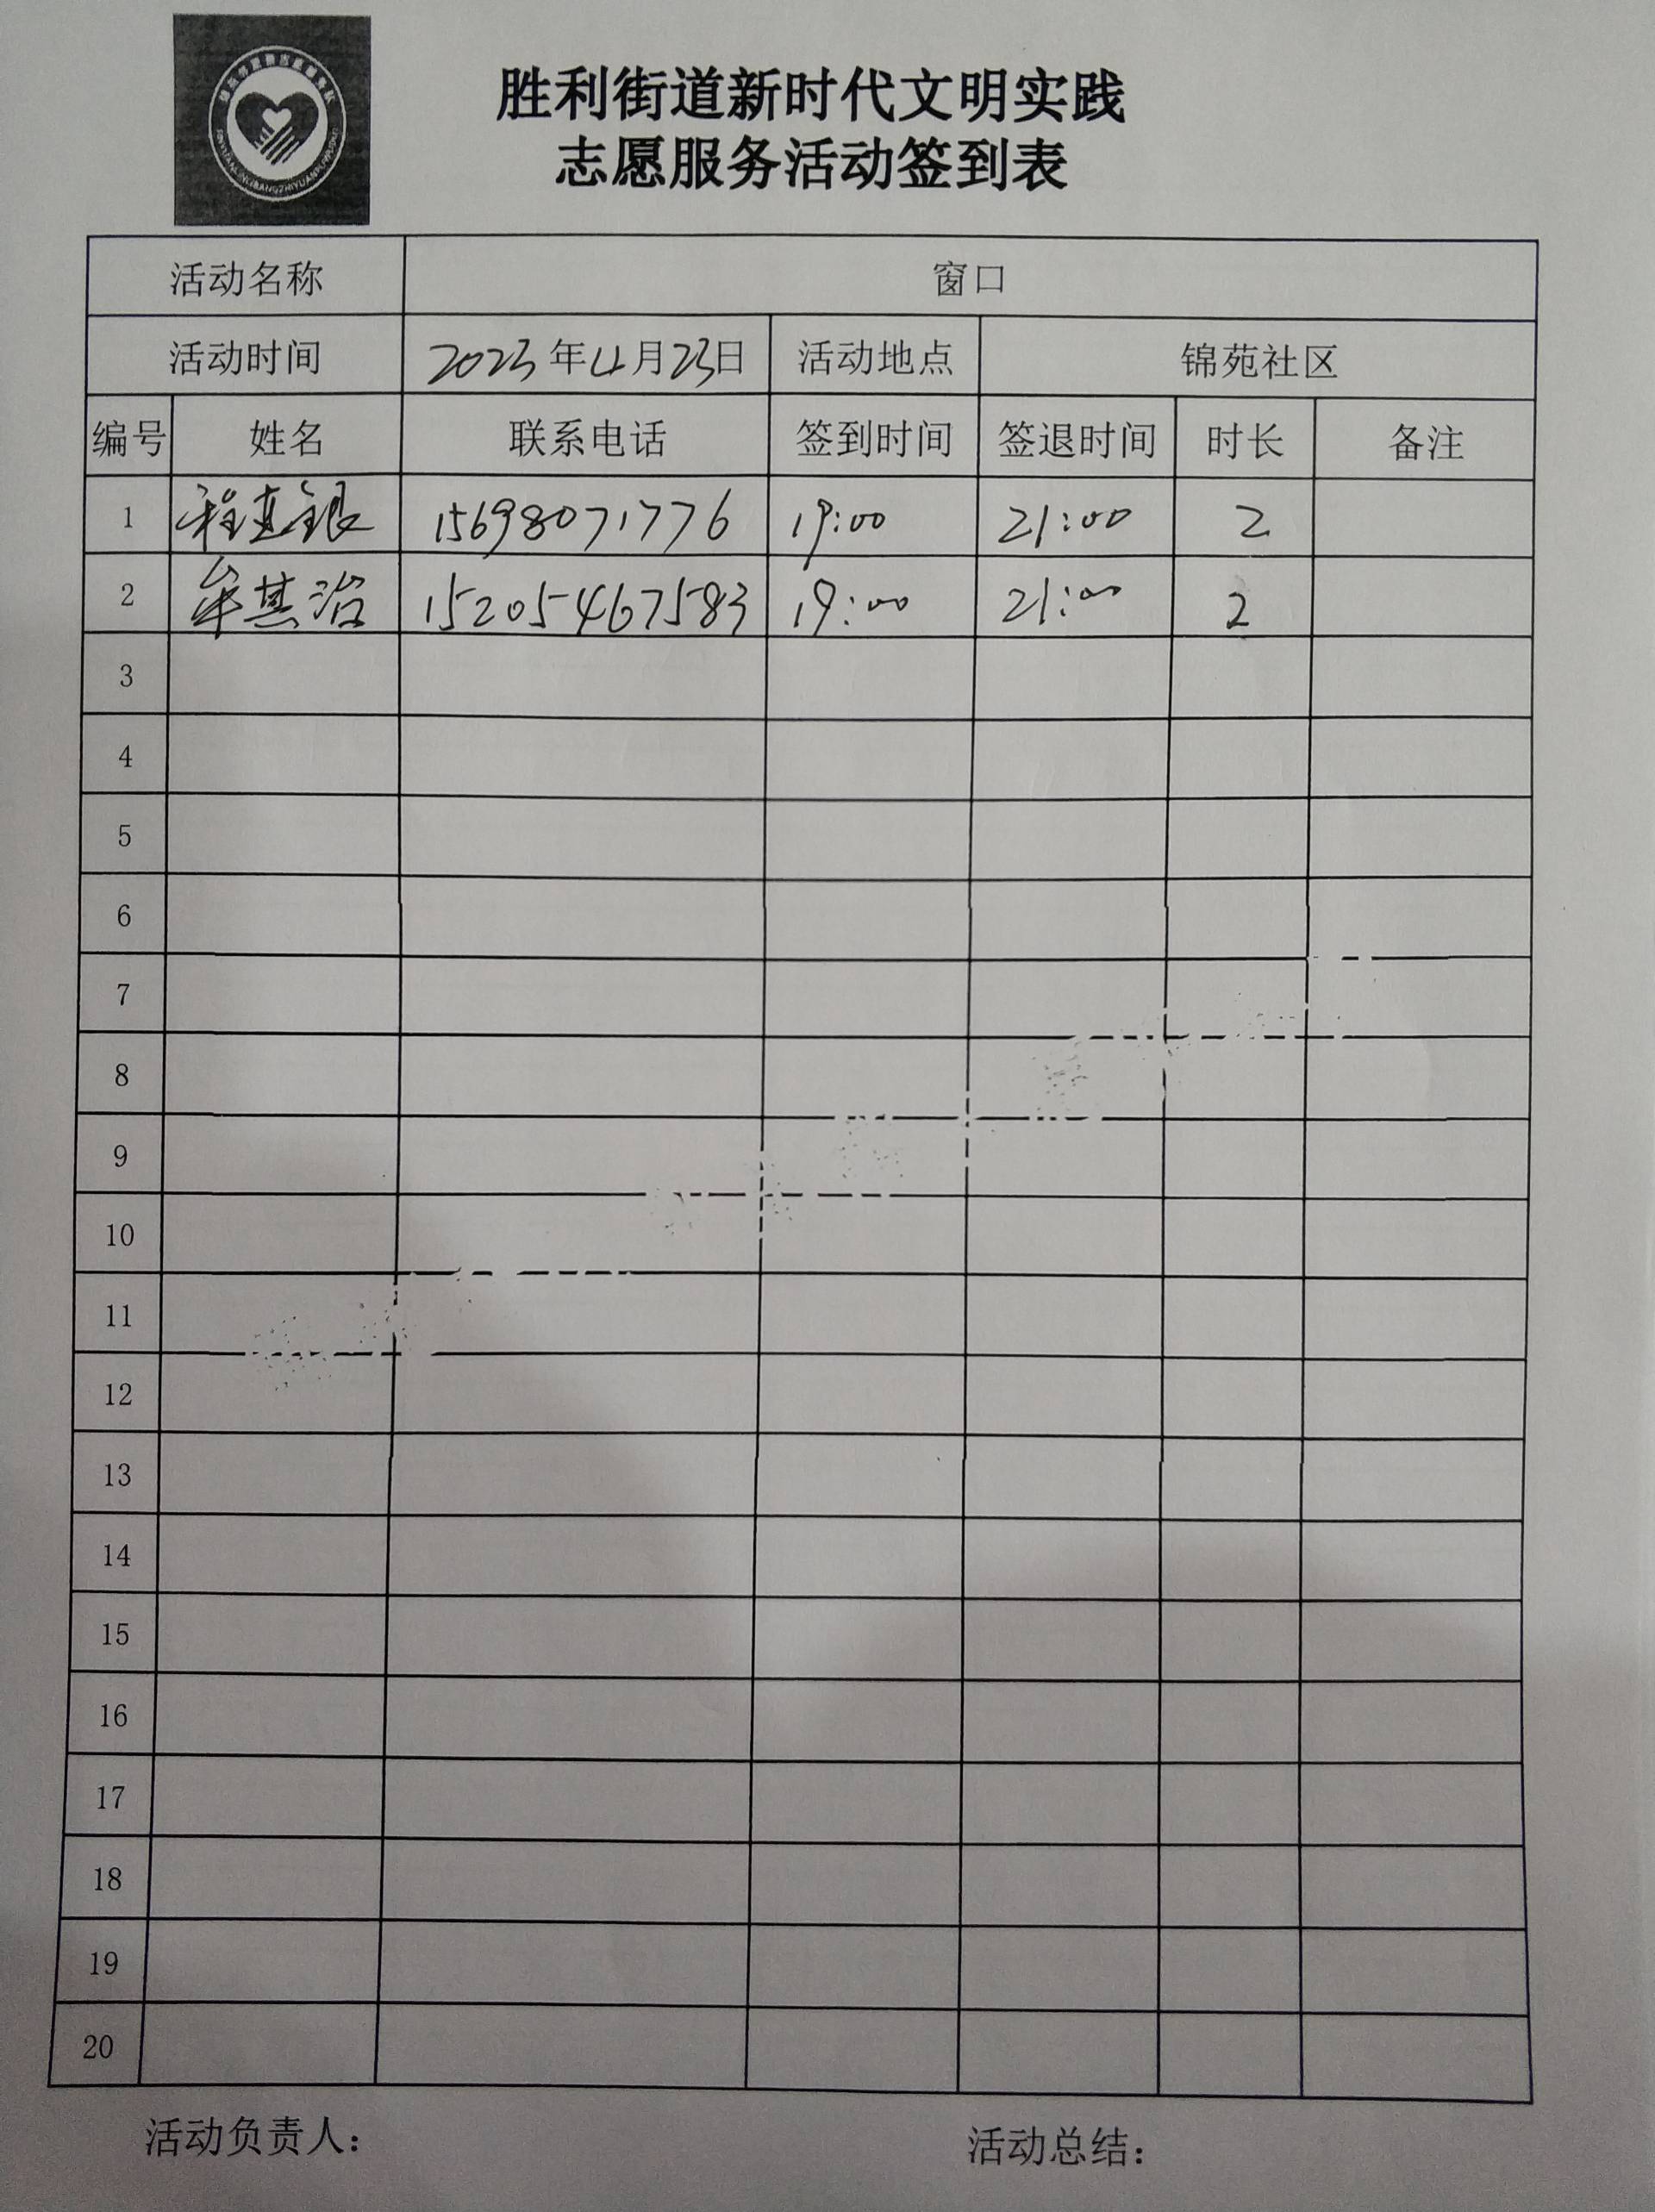 胜利街道新时代文明实践
志愿服务活动签到表
活动名称 窗口
活动时间 2023年4月23日 活动地点 锦苑社区
编号 姓名 联系电话 签到时间 签退时间 时长 备注
1 程建银 15698071776 19:00 21:00 2
2 牟其治 15205467583 19:00 21:00 2
3
4
5
6
7
8
9
10
11
12
13
14
15
16
17
18
19
20
活动负责人： 活动总结：